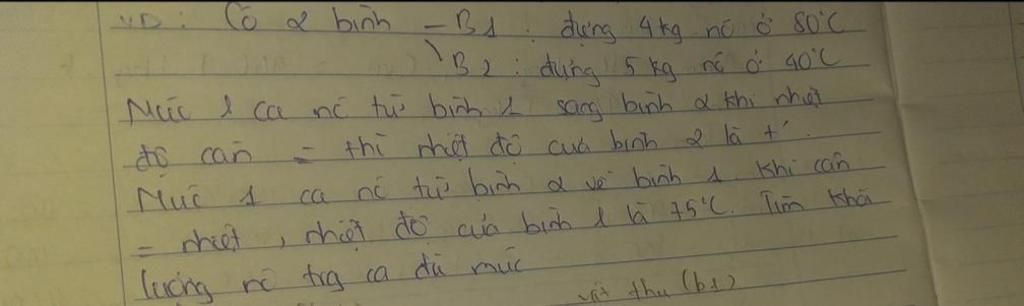 VD: Có 2 bình - B1: đựng 4kg nc ở 80°C
B2: đựng 5kg nc ở 40°C
Múc 1 ca nc từ bình 1 sang bình 2 khi nhiệt
độ cân = thì nhiệt độ của bình 2 là t'.
Múc 1 ca nc từ bình 2 về bình 1 khi cân
= nhiệt, nhiệt độ của bình 1 là 75°C. Tìm khối
lượng nc trg ca đã múc
vật thu (b1)